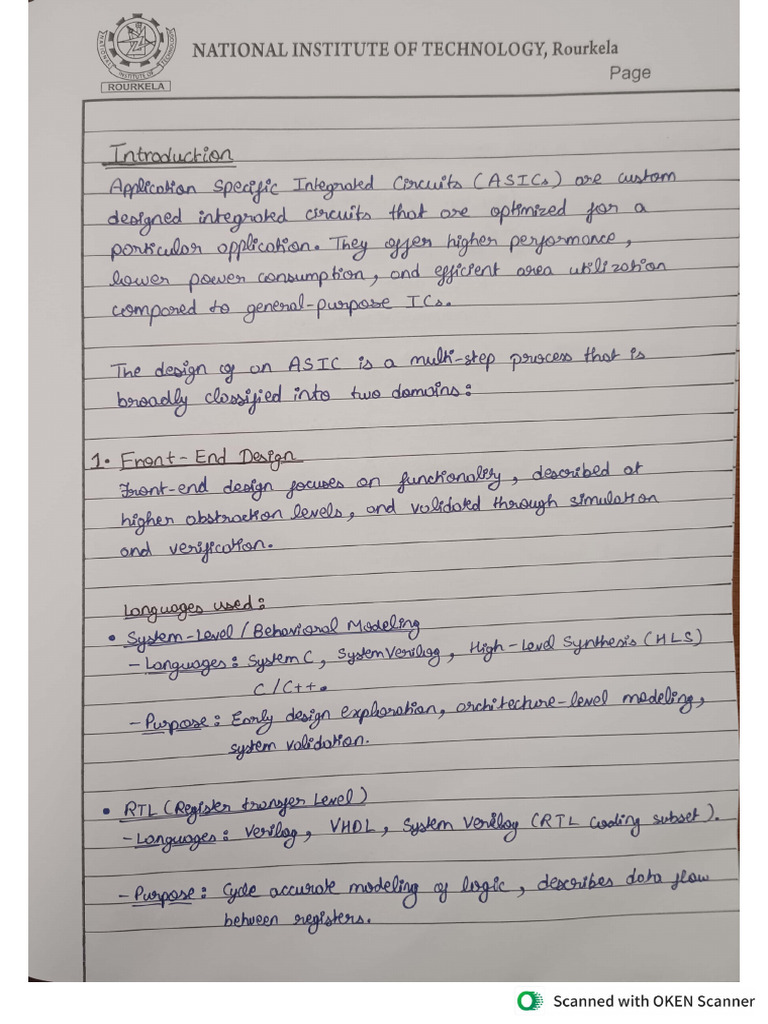 NATIONAL INSTITUTE OF TECHNOLOGY, Rourkela
ROURKELA
Page
Introduction
Application Specific Integrated Circuits (ASICs) are custom
designed integrated circuits that are optimized for a
particular application. They offer higher performance,
lower power consumption, and efficient area utilization
compared to general-purpose ICs.
The design of an ASIC is a multi-step process that is
broadly classified into two domains:
1. Front-End Design
Front-end design focuses on functionality, described at
higher abstraction levels, and validated through simulation
and verification.
Languages used:
• System-Level / Behavioral Modeling
- Languages: System C, SystemVerilog, High-Level Synthesis (HLS)
C/C++.
- Purpose: Early design exploration, architecture-level modeling,
system validation.
• RTL (Register transfer Level)
- Languages: Verilog, VHDL, System Verilog (RTL coding subset).
- Purpose: Cycle accurate modeling of logic, describes data flow
between registers.
Scanned with OKEN Scanner